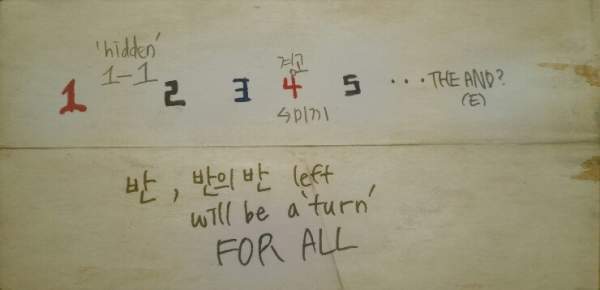 'hidden'
1-1
1 2 3 4 5 ... THE AND?
(E)
반, 반의 반 left
will be a 'turn'
FOR ALL